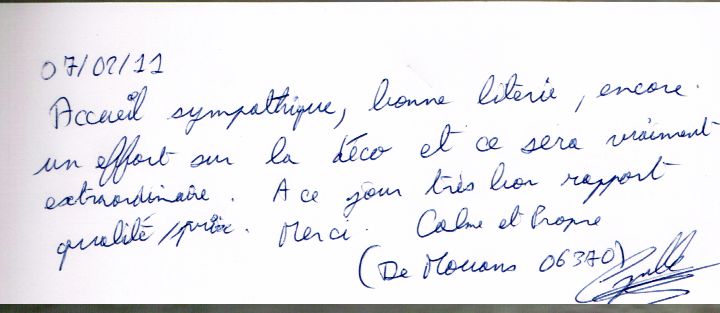 07/02/11
Accueil sympathique, bonne literie, encore
un effort sur la déco et ce sera vraiment
extraordinaire. A ce jour très bon rapport
qualité/prix. Merci. Calme et Propre
(De Mouans 06370)